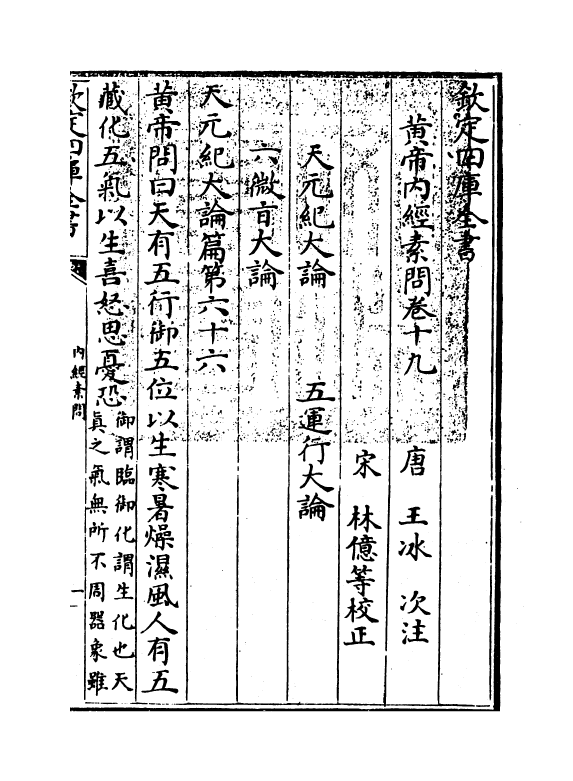 欽定四庫全書
黄帝內經素問卷十九
唐 王冰 次注
宋 林億等校正
天元紀大論 五運行大論
六微㫖大論
天元紀大論篇第六十六
黄帝問曰天有五行御五位以生寒暑燥濕風人有五
藏化五氣以生喜怒思憂恐
御謂臨御化謂生化也天
真之氣無所不周器象雖
欽定四庫全書
內經素問
一